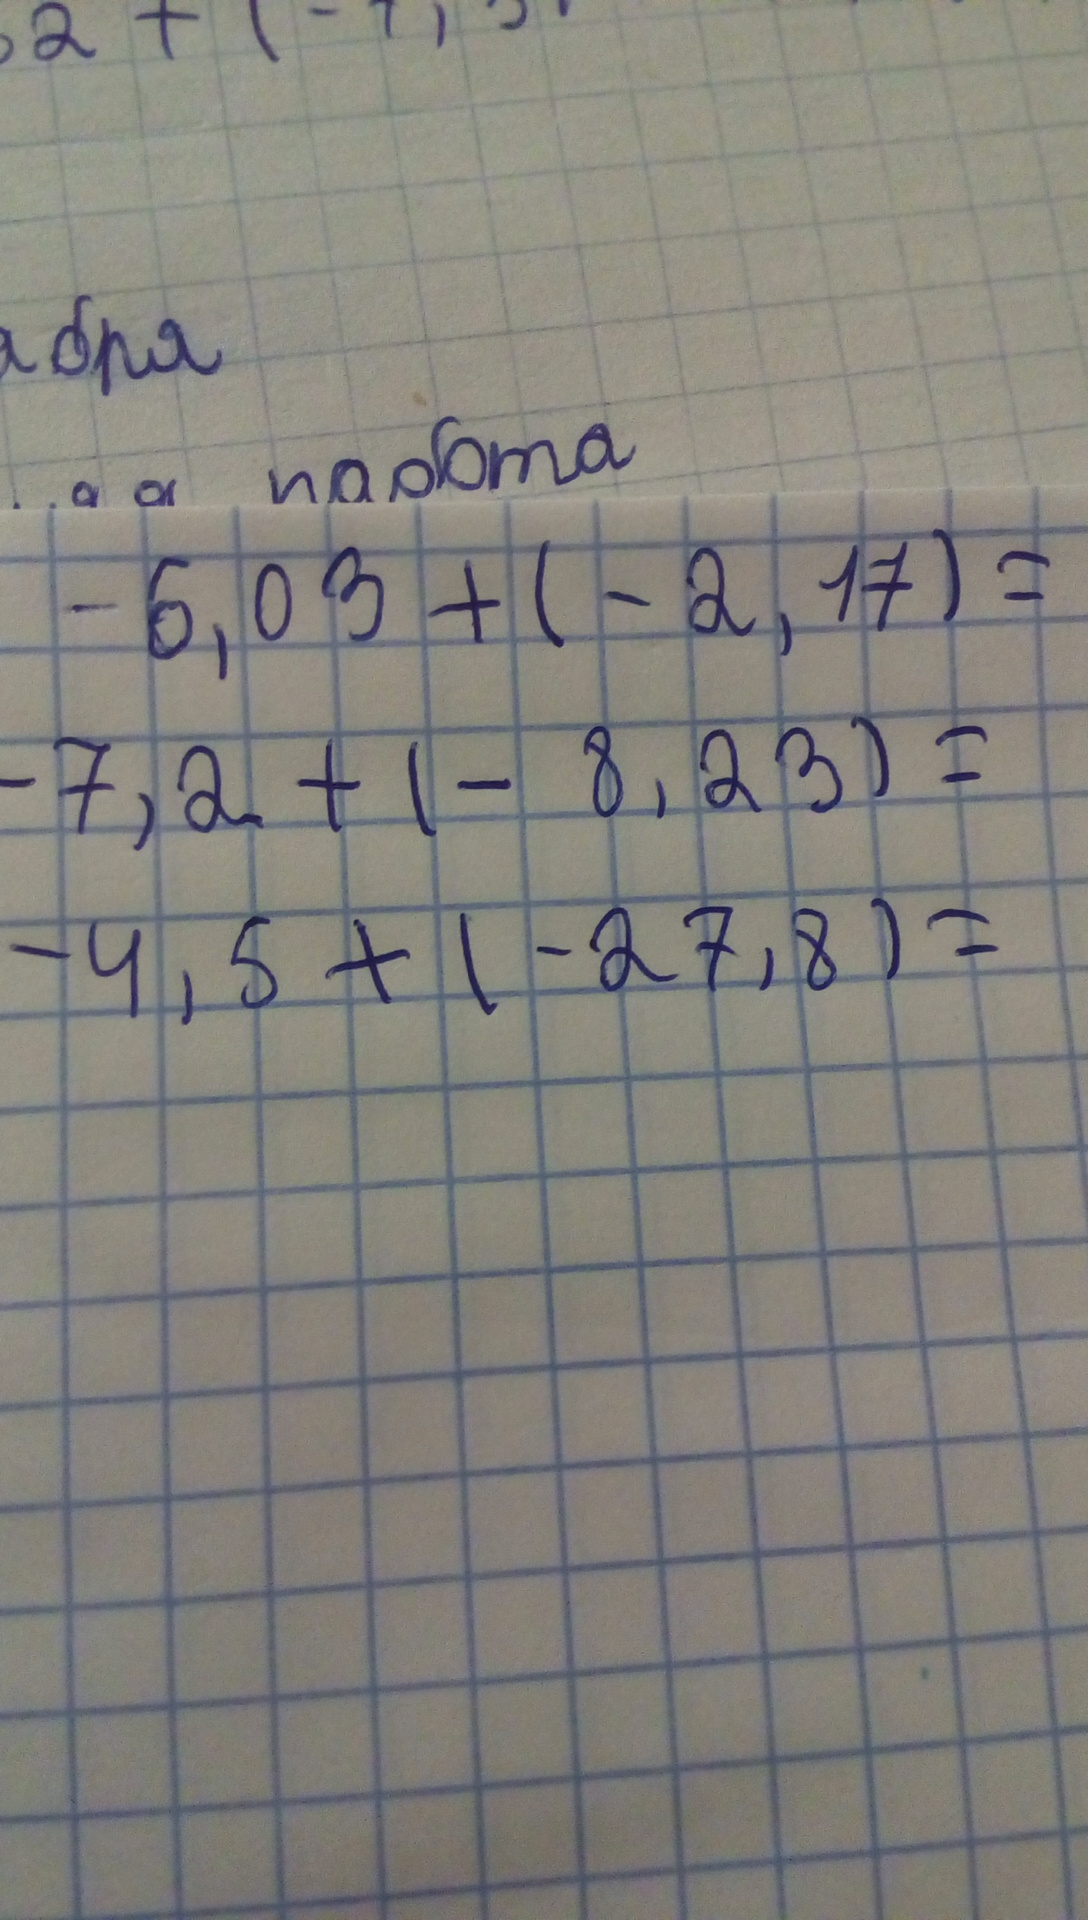 2 + ( -
абря
работа
-6,03 + ( - 2,17) =
-7,2 + ( - 8,23) =
-4,5 + ( -27,8) =